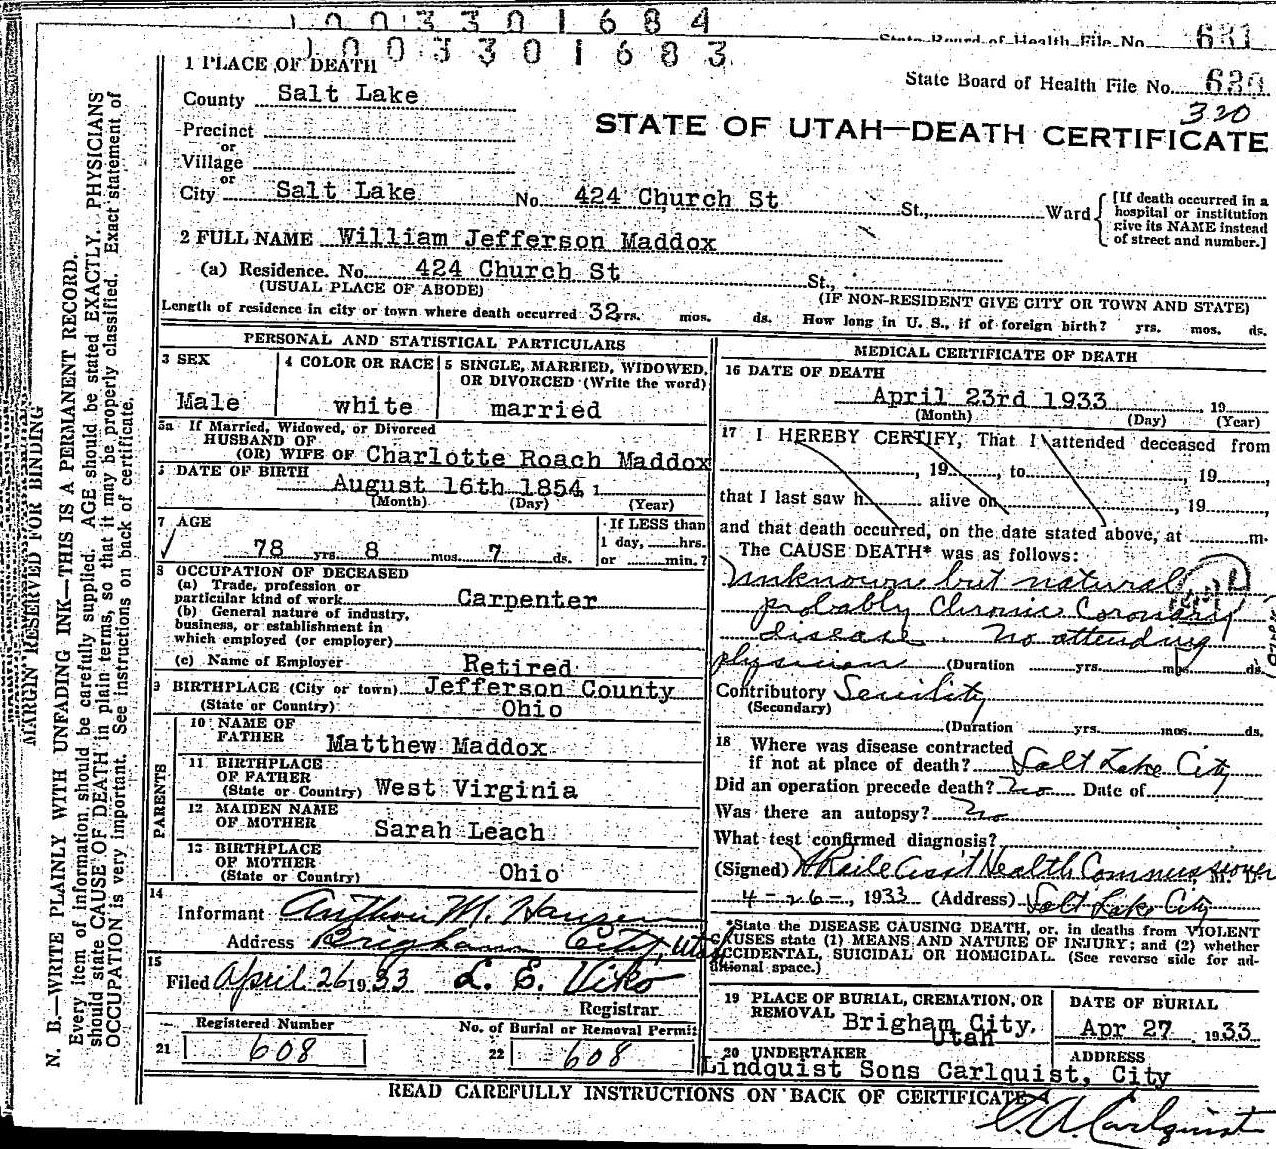 1003301684
State Board of Health File No. 631
1003301683
1 PLACE OF DEATH
State Board of Health File No. 630
County Salt Lake
320
STATE OF UTAH—DEATH CERTIFICATE
Precinct
or
Village
or
City Salt Lake No. 424 Church St St., Ward
[If death occurred in a
hospital or institution
give its NAME instead
of street and number.]
2 FULL NAME William Jefferson Maddox
(a) Residence. No. 424 Church St St.,
(USUAL PLACE OF ABODE) (IF NON-RESIDENT GIVE CITY OR TOWN AND STATE)
Length of residence in city or town where death occurred 32 yrs. mos. ds. How long in U. S., if of foreign birth? yrs. mos. ds.
PERSONAL AND STATISTICAL PARTICULARS
3 SEX
Male
4 COLOR OR RACE
white
5 SINGLE, MARRIED, WIDOWED,
OR DIVORCED (Write the word)
married
5a If Married, Widowed, or Divorced
HUSBAND OF
(OR) WIFE OF Charlotte Roach Maddox
DATE OF BIRTH
August 16th 1854 1
(Month) (Day) (Year)
7 AGE
78 yrs. 8 mos. 7 ds.
If LESS than
1 day, hrs.
or min.?
8 OCCUPATION OF DECEASED
(a) Trade, profession or
particular kind of work Carpenter
(b) General nature of industry,
business, or establishment in
which employed (or employer)
(c) Name of Employer Retired
9 BIRTHPLACE (City or town) Jefferson County
(State or Country) Ohio
PARENTS
10 NAME OF
FATHER Matthew Maddox
11 BIRTHPLACE
OF FATHER
(State or Country) West Virginia
12 MAIDEN NAME
OF MOTHER Sarah Leach
13 BIRTHPLACE
OF MOTHER
(State or Country) Ohio
14
Informant M. Hansen
Address Brigham City, Utah
15
Filed April 26 1933 L. E. Viko
Registrar
Registered Number
21 608
No. of Burial or Removal Permit
22 608
MEDICAL CERTIFICATE OF DEATH
16 DATE OF DEATH
April 23rd 1933 , 19
(Month) (Day) (Year)
17 I HEREBY CERTIFY, That I attended deceased from
, 19 , to , 19 ,
that I last saw h alive on , 19 ,
and that death occurred, on the date stated above, at m.
The CAUSE DEATH* was as follows:
Unknown but natural
probably Chronic Coronary
disease. No attending
physician (Duration yrs. mos. ds.
Contributory Senility
(Secondary)
(Duration yrs. mos. ds.
18 Where was disease contracted
if not at place of death? Salt Lake City
Did an operation precede death? No Date of
Was there an autopsy? No
What test confirmed diagnosis?
(Signed) Ass't Health Commissioner, M. D.
4-26-, 1933 (Address) Salt Lake City
*State the DISEASE CAUSING DEATH, or, in deaths from VIOLENT
CAUSES state (1) MEANS AND NATURE OF INJURY; and (2) whether
ACCIDENTAL, SUICIDAL OR HOMICIDAL. (See reverse side for ad-
ditional space.)
19 PLACE OF BURIAL, CREMATION, OR
REMOVAL Brigham City,
Utah
DATE OF BURIAL
Apr 27 1933
20 UNDERTAKER
Lindquist Sons Carlquist, City
ADDRESS
READ CAREFULLY INSTRUCTIONS ON BACK OF CERTIFICATE
C. A. Carlquist
MARGIN RESERVED FOR BINDING
N. B.—WRITE PLAINLY WITH UNFADING INK—THIS IS A PERMANENT RECORD.
Every item of information should be carefully supplied. AGE should be stated EXACTLY. PHYSICIANS
should state CAUSE OF DEATH in plain terms, so that it may be properly classified. Exact statement of
OCCUPATION is very important. See instructions on back of certificate.